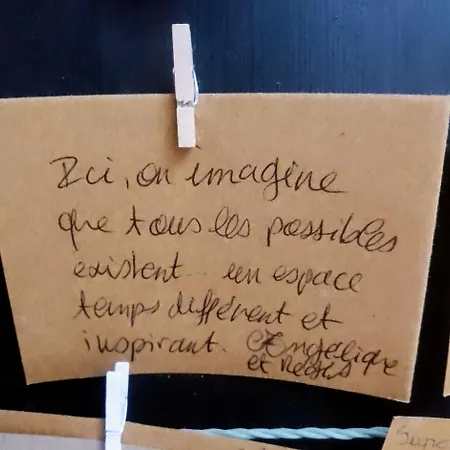 Ici, on imagine
que tous les possibles
existent... un espace
temps différent et
inspirant. Angélique
et